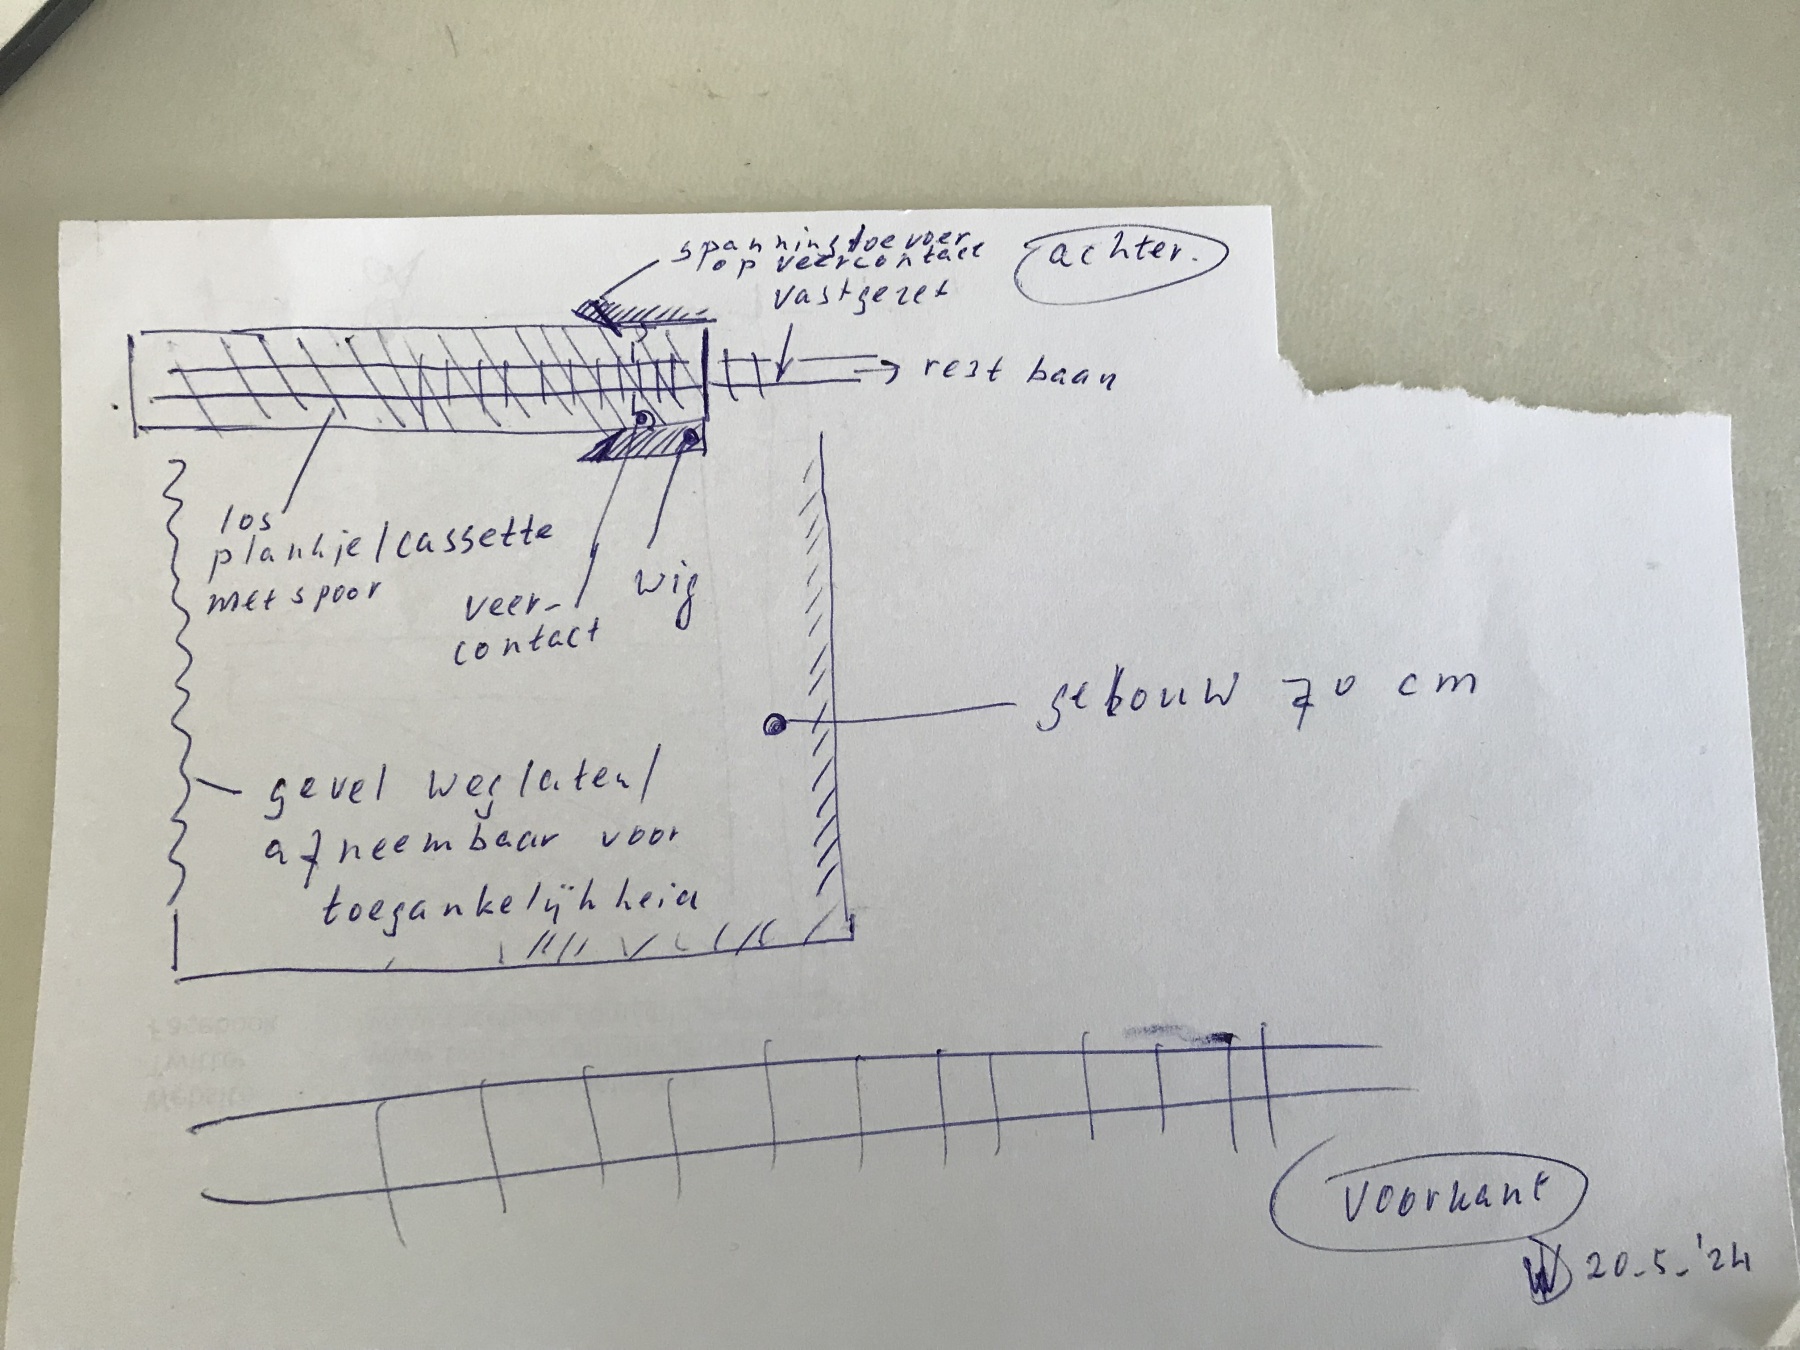 spanningstoevoer
op veercontact
achter.
vastgezet
rest baan
los
plankje/cassette
met spoor
veer-
contact
wig
gebouw 70 cm
gevel weglaten/
afneembaar voor
toegankelijkheid
Facebook
Twitter
Website
Voorkant
20-5-'24